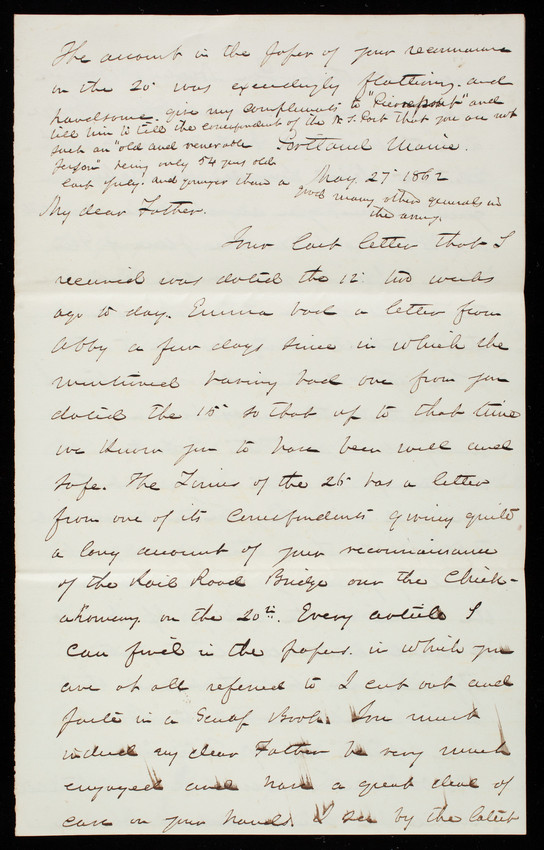 The account in the paper of your reconnaissance
on the 20 was exceedingly flattering and
handsome. give my compliments to "Pierrepont" and
tell him to tell the corespondent of the N. Y. Post that you are not
such an "old and venerable
person" being only 54 years old
last July. and younger than a
good many other generals in
the army.
Portland Maine.
May. 27 1862
My dear Father.
Your last letter that I
received was dated the 12 two weeks
ago to day. Emma had a letter from
Abby a few days since in which she
mentioned having had one from you
dated the 15 so that up to that time
we know you to have been well and
safe. The Times of the 26 has a letter
from one of its corespondents giving quite
a long account of your reconnaissance
of the Rail Road Bridge over the Chick-
ahominy on the 20th. Every article I
can find in the papers. in which you
are at all referred to I cut out and
paste in a Scrap Book. You must
indeed my dear Father be very much
engaged and have a great deal of
care on your hands. I see by the latest